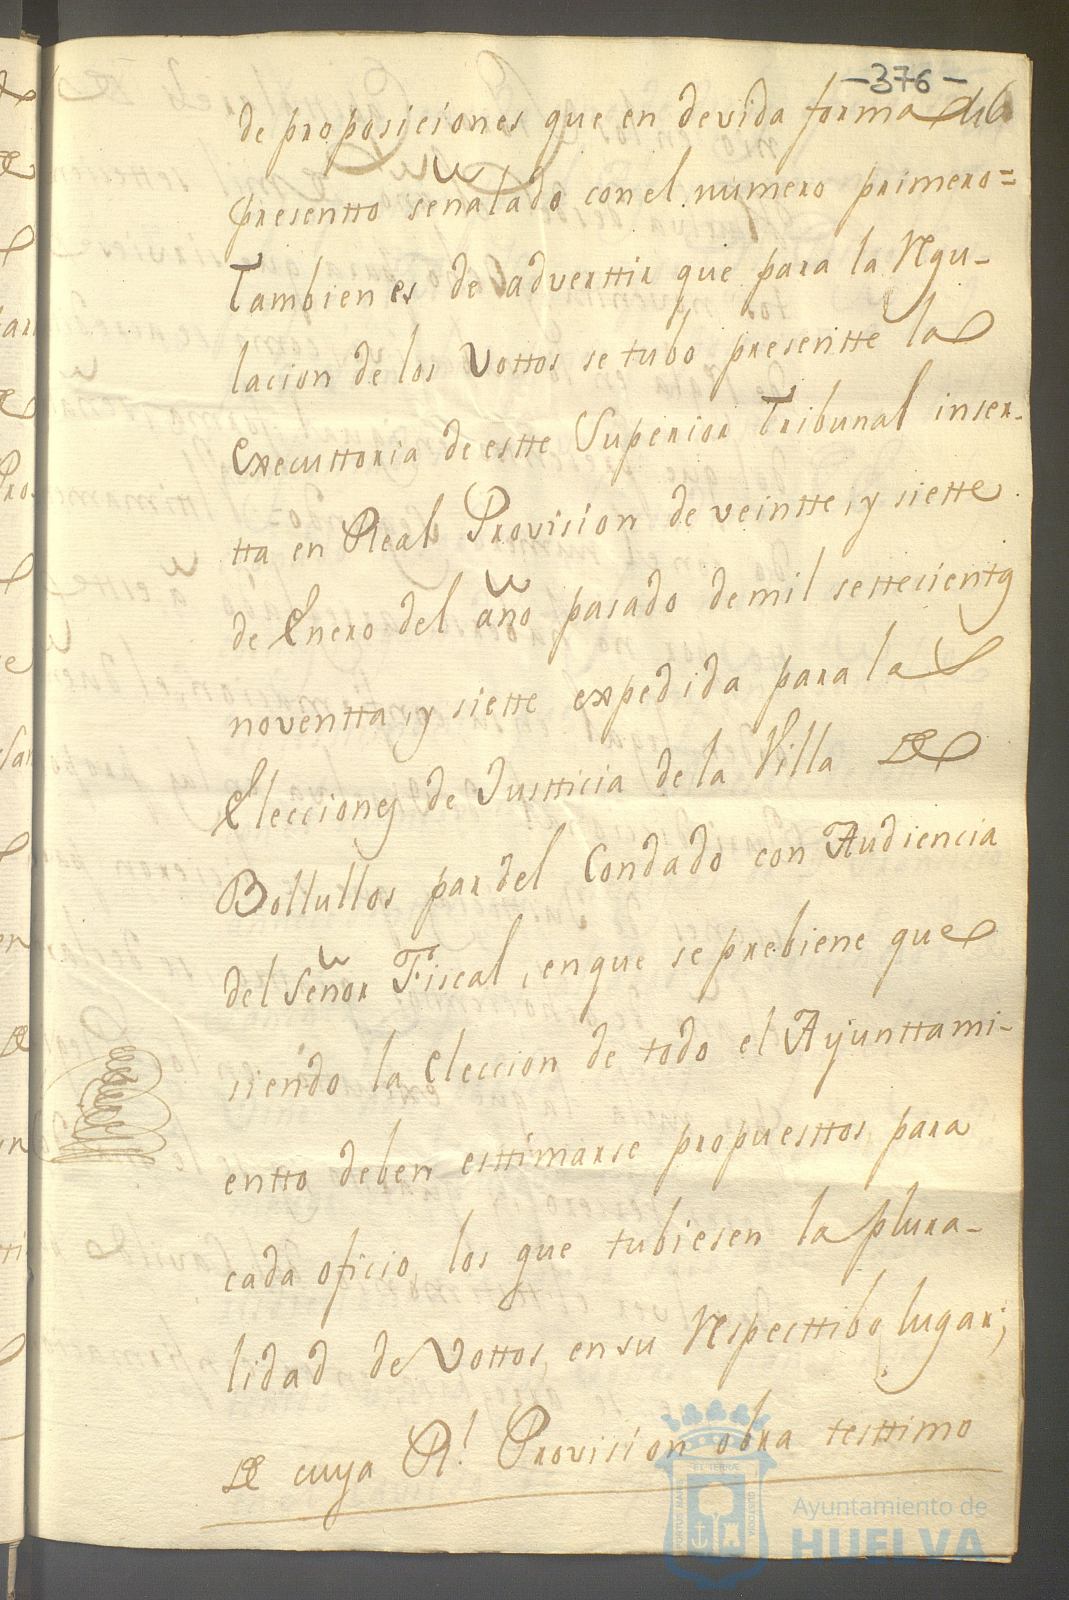 -376-
de proposiciones que en devida forma
presentto señalado con el numero primero=
Tambien es de adverttir que para la Regu-
lacion de los Vottos se tubo presentte la
executtoria de estte Superior Tribunal inser-
tta en Real Provision de veintte, y siette
de Enero del año pasado de mil settecientos
noventta, y siette expedida para la
Elecciones de Justticia de la Villa de
Bollullos par del Condado con Audiencia
del Señor Fiscal, en que se prebiene que
siendo la eleccion de todo el Ayunttami-
entto deben esttimarse propuesttos para
cada oficio, los que tubiesen la plura-
lidad de Vottos, en su Respecttibo lugar;
de cuya Rl. Provision obra testtimo
Ayuntamiento de
HUELVA